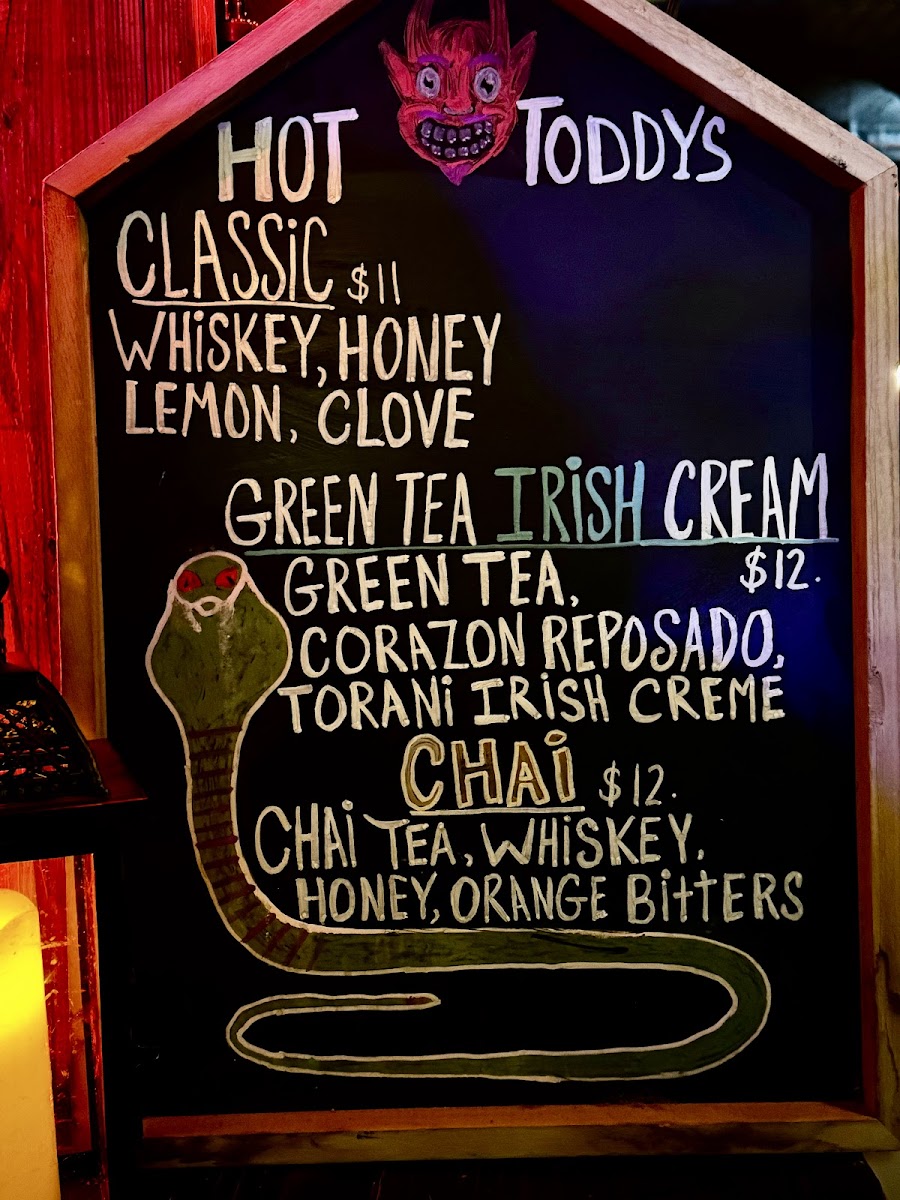 HOT TODDYS
CLASSiC $11
WHiSKEY, HONEY
LEMON, CLOVE
GREEN TEA IRiSH CREAM
$12.
GREEN TEA,
CORAZON REPOSADO,
TORANi IRISH CREME
CHAi $12.
CHAi TEA, WHiSKEY,
HONEY, ORANGE BittERS